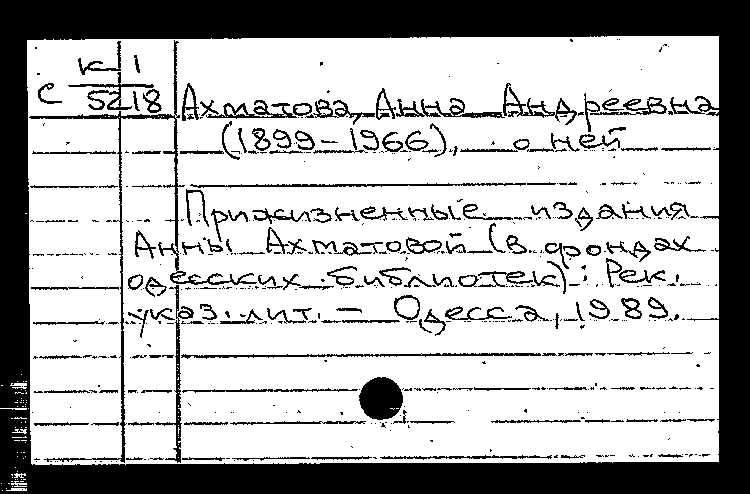 к 1
С 5218 Ахматова, Анна Андреевна
(1899-1966), о ней
Прижизненные издания
Анны Ахматовой (в фондах
одесских библиотек): Рек.
указ. лит. - Одесса, 1989.